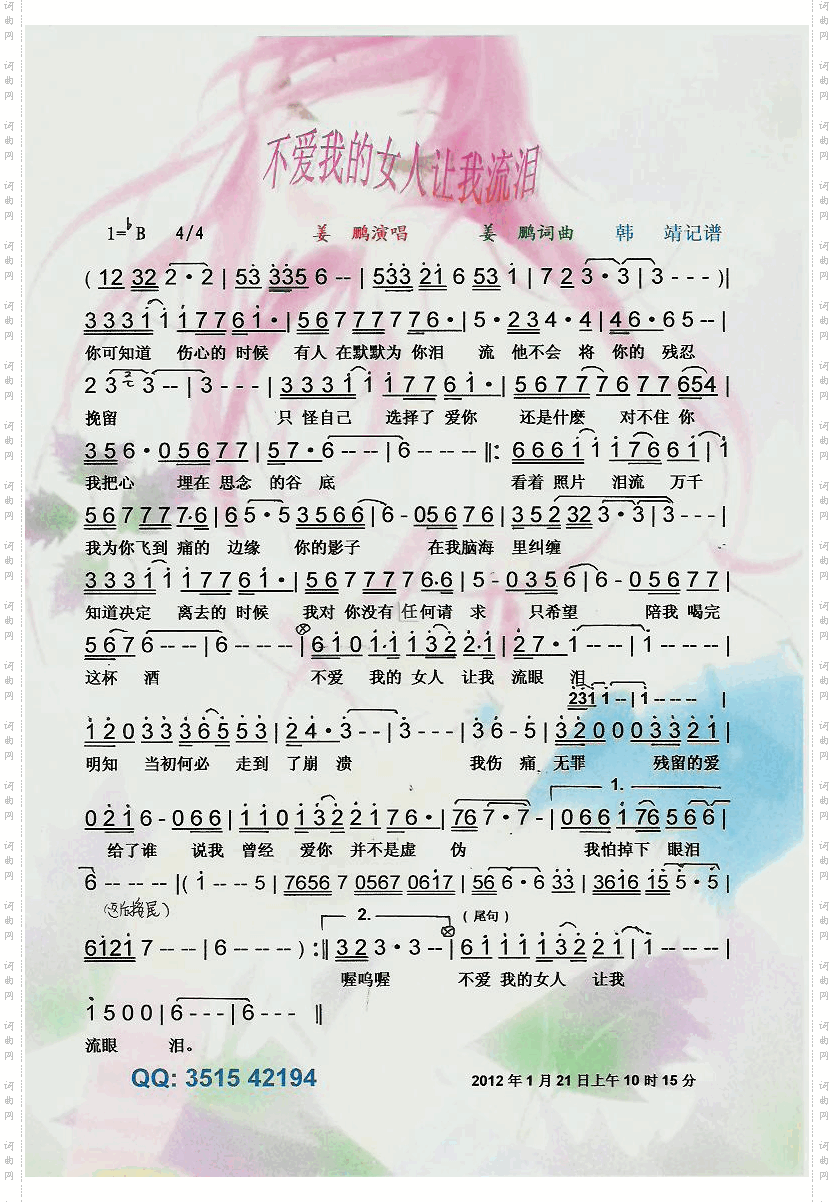 不爱我的女人让我流泪
1=♭B 4/4 姜 鹏演唱 姜 鹏词曲 韩 靖记谱
( 12 32 2·2 | 53 335 6 -- | 533 21 6 53 1 | 7 2 3·3 | 3 - - - )|
3 3 3 1 1 1 7 7 6 1· | 5 6 7 7 7 7 7 6· | 5·2 3 4·4 | 4 6·6 5 -- |
你可知道 伤心的 时候 有人 在默默为 你泪 流 他不会 将 你的 残忍
2 3 3 -- | 3 - - - | 3 3 3 1 1 1 7 7 6 1· | 5 6 7 7 7 6 7 7 654 |
挽留 只 怪自己 选择了 爱你 还是什麽 对不住 你
3 5 6·0 5 6 7 7 | 5 7·6 -- -- | 6 -- -- -- ‖: 6 6 6 1 1 1 7 6 6 1 | 1
我把心 埋在 思念 的谷 底 看着 照片 泪流 万千
5 6 7 7 7 7·6 | 6 5·5 3 5 6 6 | 6 - 0 5 6 7 6 | 3 5 2 32 3·3 | 3 - - - |
我为你飞到 痛的 边缘 你的影子 在我脑海 里纠缠
3 3 3 1 1 1 7 7 6 1· | 5 6 7 7 7 7 6·6 | 5 - 0 3 5 6 | 6 - 0 5 6 7 7 |
知道决定 离去的 时候 我对 你没有 任何请 求 只希望 陪我 喝完
5 6 7 6 -- -- | 6 -- -- -- | 6 1 0 1·1 1 3 2 2·1 | 2 7·1 -- -- | 1 -- -- |
这杯 酒 不爱 我的 女人 让我 流眼 泪
231 1 -- | 1 -- -- -- |
1 2 0 3 3 3 6 5 5 3 | 2 4·3 -- | 3 -- -- | 3 6 - 5 | 3 2 0 0 0 3 3 2 1 |
明知 当初何必 走到 了崩 溃 我伤 痛 无罪 残留的爱
1.
0 2 1 6 - 0 6 6 | 1 1 0 1 3 2 2 1 7 6· | 76 7·7 - | 0 6 6 1 76 5 6 6 |
给了谁 说我 曾经 爱你 并不是虚 伪 我怕掉下 眼泪
6 -- -- -- |( 1 -- -- 5 | 7656 7 0567 0617 | 56 6·6 33 | 3616 15 5·5 |
2. (尾句)
6121 7 -- -- | 6 -- -- -- ) :‖ 3 2 3·3 -- | 6 1 1 1 1 3 2 2 1 | 1 -- -- -- |
喔呜喔 不爱 我的女人 让我
1 5 0 0 | 6 - - - | 6 - - - ‖
流眼 泪。
QQ: 3515 42194 2012 年 1 月 21 日上午 10 时 15 分